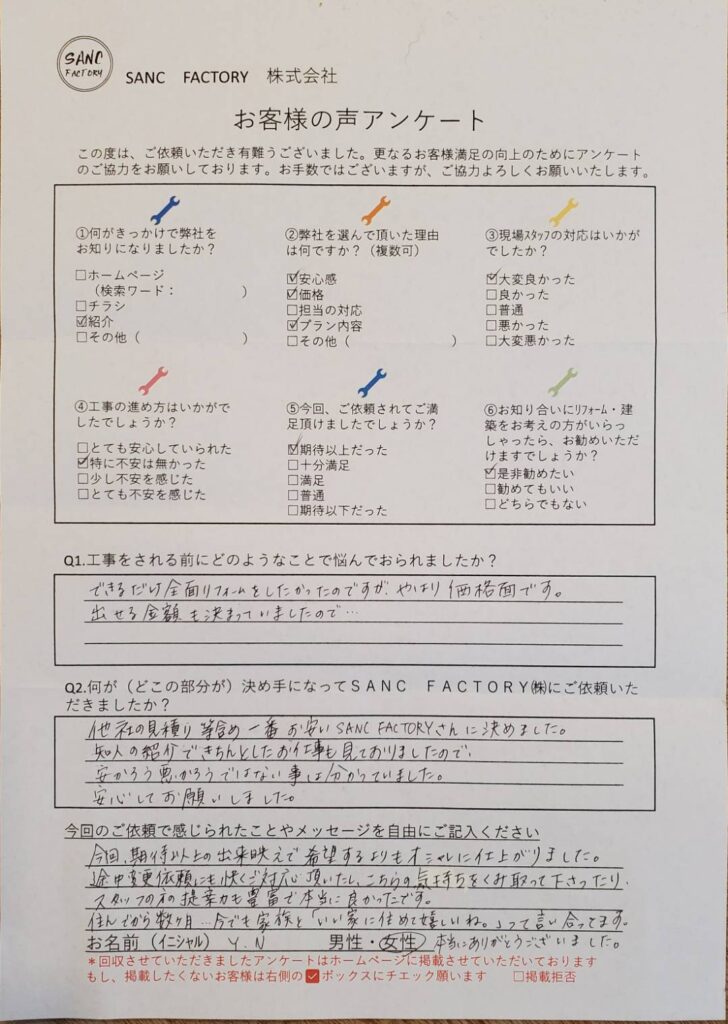 SANC
FACTORY
SANC　FACTORY　株式会社
お客様の声アンケート
この度は、ご依頼いただき有難うございました。更なるお客様満足の向上のためにアンケート
のご協力をお願いしております。お手数ではございますが、ご協力よろしくお願いいたします。
①何がきっかけで弊社を
お知りになりましたか？
□ホームページ
（検索ワード：　　　　　）
□チラシ
☑紹介
□その他（　　　　　　　　）
②弊社を選んで頂いた理由
は何ですか？（複数可）
☑安心感
☑価格
□担当の対応
☑プラン内容
□その他（　　　　　　　　）
③現場ｽﾀｯﾌの対応はいかが
でしたか？
☑大変良かった
□良かった
□普通
□悪かった
□大変悪かった
④工事の進め方はいかがで
したでしょうか？
□とても安心していられた
☑特に不安は無かった
□少し不安を感じた
□とても不安を感じた
⑤今回、ご依頼されてご満
足頂けましたでしょうか？
☑期待以上だった
□十分満足
□満足
□普通
□期待以下だった
⑥お知り合いにﾘﾌｫｰﾑ・建
築をお考えの方がいらっ
しゃったら、お勧めいただ
けますでしょうか？
☑是非勧めたい
□勧めてもいい
□どちらでもない
Q1.工事をされる前にどのようなことで悩んでおられましたか？
できるだけ全面リフォームをしたかったのですが、やはり価格面です。
出せる金額も決まっていましたので…
Q2.何が（どこの部分が）決め手になってＳＡＮＣ　ＦＡＣＴＯＲＹ㈱にご依頼いた
だきましたか？
他社の見積り等含め一番お安いSANC FACTORYさんに決めました。
知人の紹介できちんとしたお仕事も見ておりましたので、
安かろう悪かろうではない事は分かっていました。
安心してお願いしました。
今回のご依頼で感じられたことやメッセージを自由にご記入ください
今回、期待以上の出来映えで希望するよりもオシャレに仕上がりました。
途中変更依頼にも快くご対応頂いたし、こちらの気持ちをくみ取って下さったり、
スタッフの方の提案力も豊富で本当に良かったです。
住んでから数ヶ月…今でも家族と「いい家に住めて嬉しいね。」って言い合ってます。
お名前（イニシャル）　Y.N　　　男性・女性　本当にありがとうございました。
＊回収させていただきましたアンケートはホームページに掲載させていただいております
もし、掲載したくないお客様は右側の☑ボックスにチェック願います　　□掲載拒否